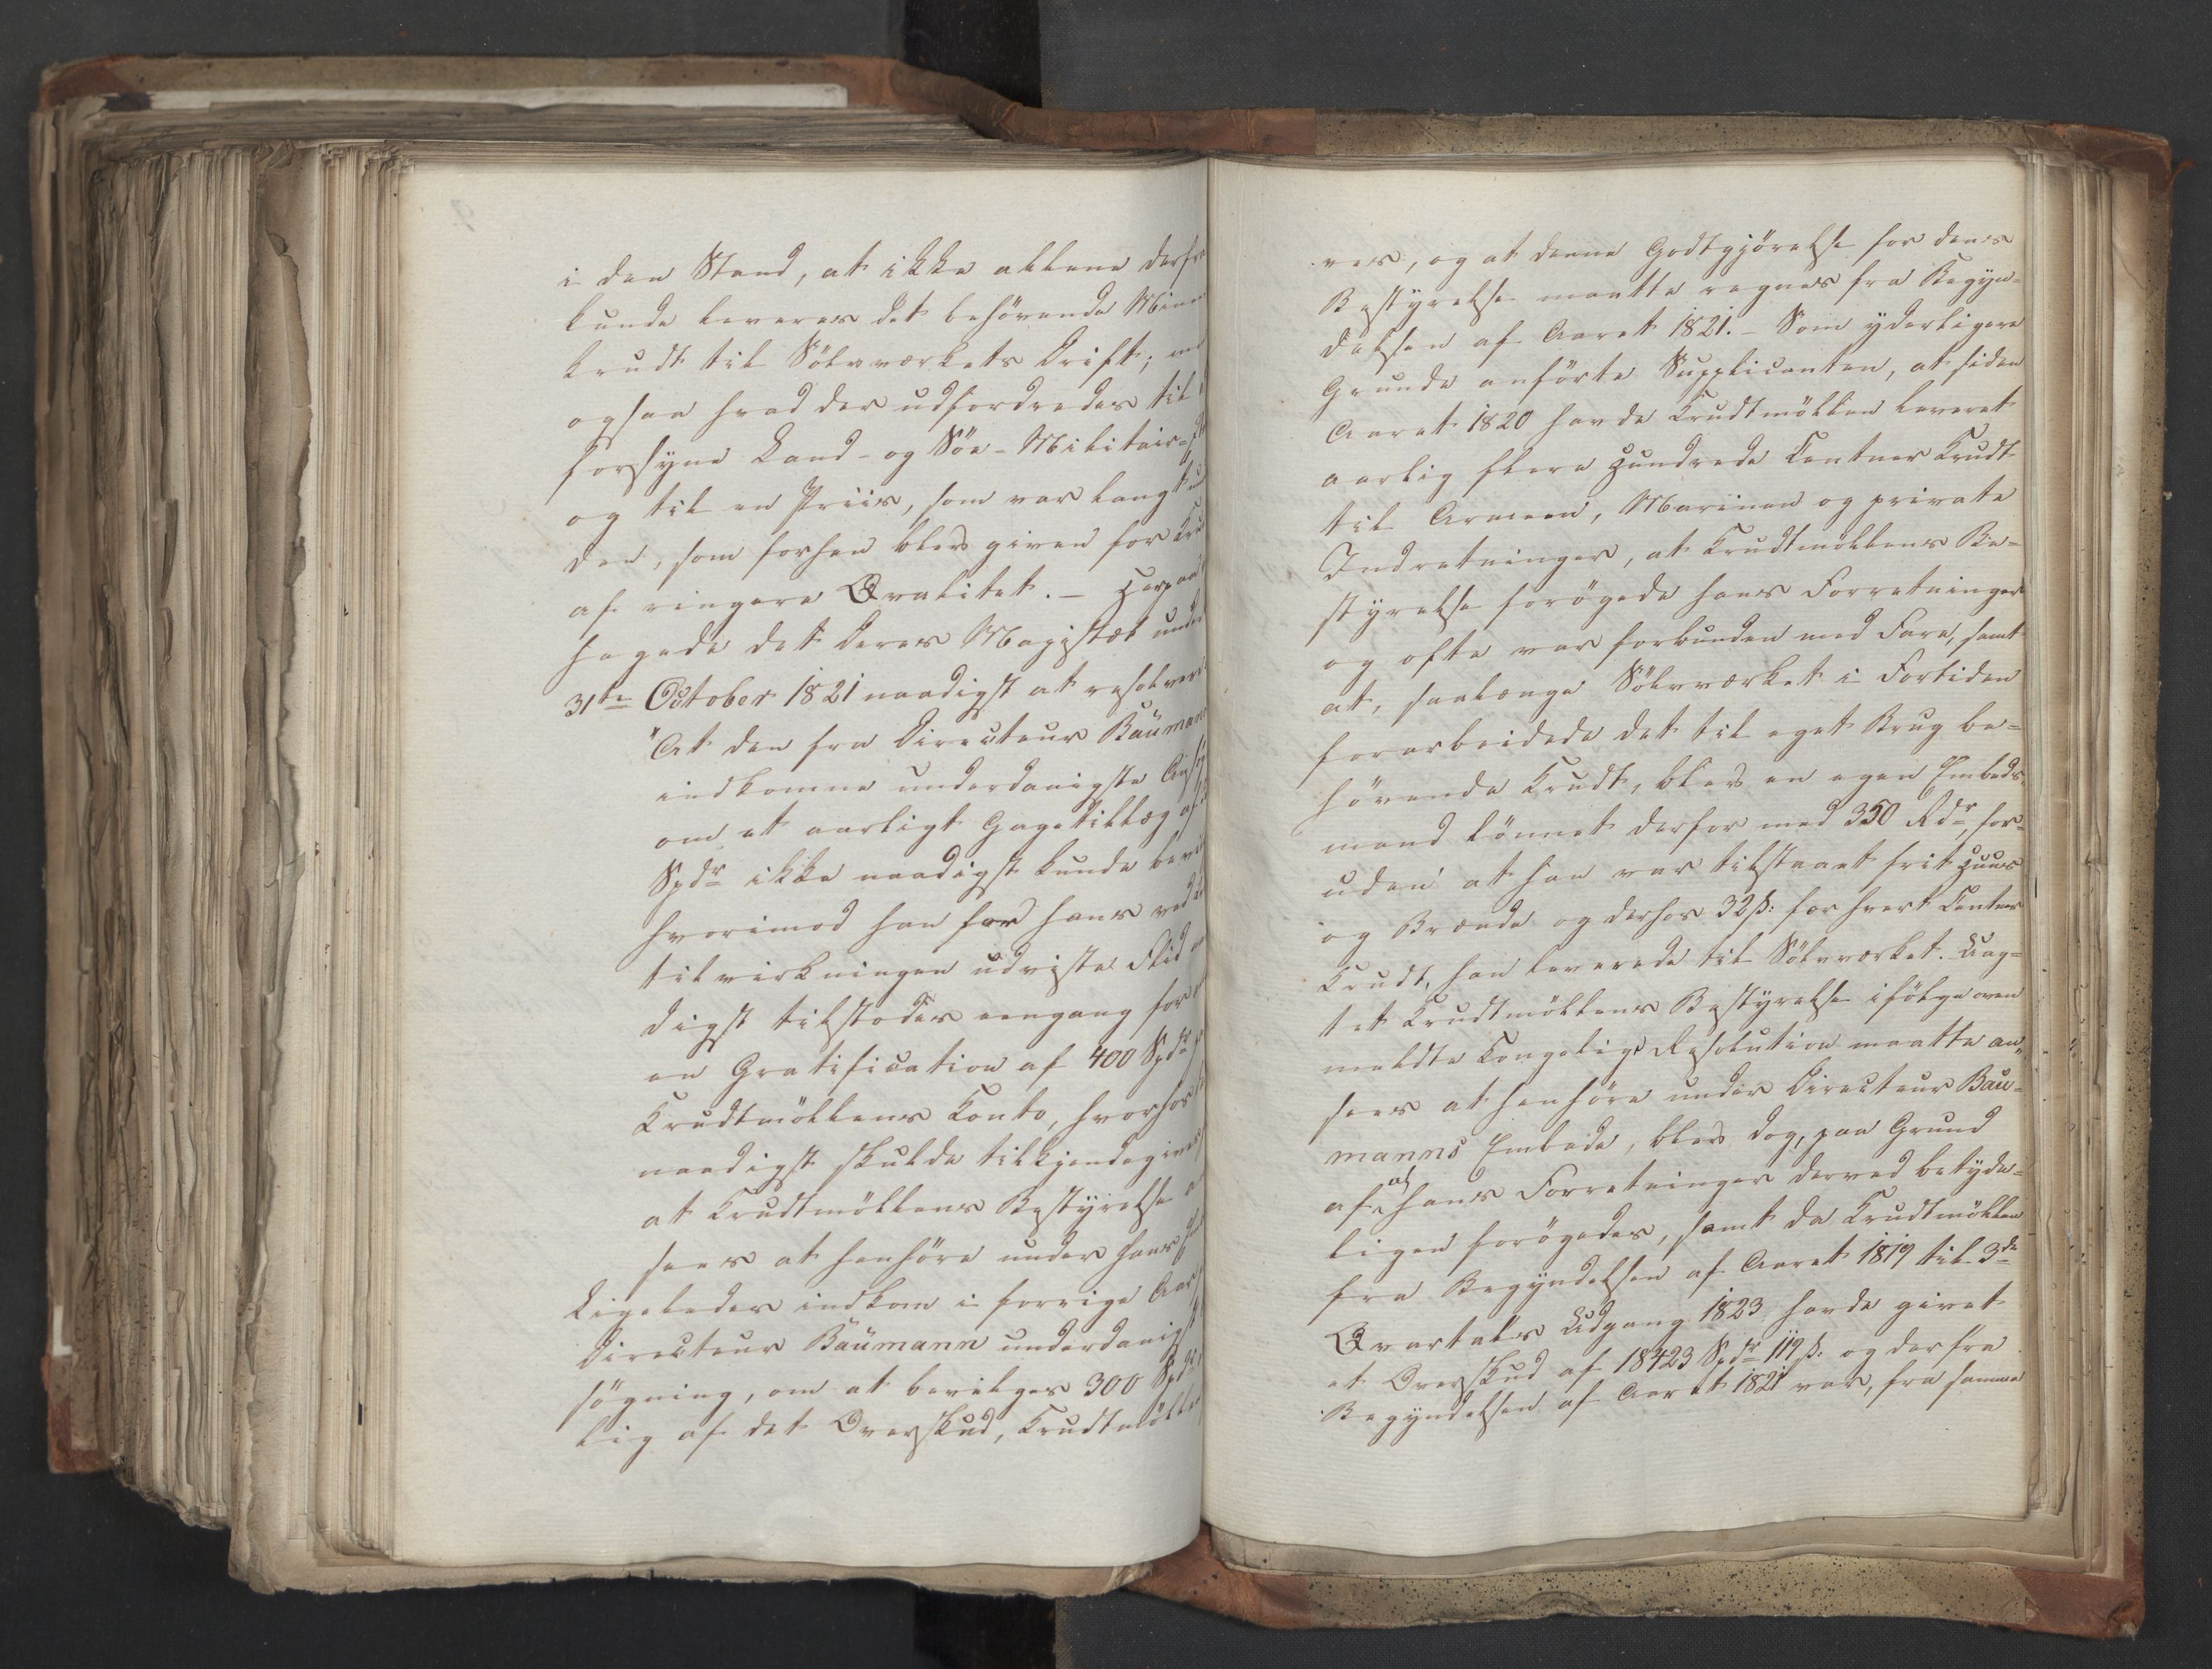 i den Stand, at ikke allene derfra
kunde leveres det behövende Mine
krudt til Sölvværkets Drift; men
ogsaa hvad der udfordredes til
forsyne Land- og Söe-Militair
og til en Priis, som var langt
den, som forhen blev given for Kru
af ringere Qvalitet. – Herpaa
hagede det Deres Majestæt under
31te October 1821 naadigst at resolvere
"At den fra Directeur Baumann
indkomne underdanigste Ansög
om et aarligt Gagetillæg af
Spdr ikke naadigst kunde bevil
hvorimod han for hans ved
tilvirkningen udviste Flid
digst tilstodes eengang for
en Gratification af 400 Spdr
Krudtmöllens Conto, hvorhos
naadigst skulde tilkjendegives
at Krudtmöllens Bestyrelse
sees at henhöre under hans
Ligeledes indkom i forrige Aar
Directeur Baumann underdanig
sögning, om at bevilges 300 Spdr
lig af det Overskud, Krudtmölle
ves, og at denne Godtgjörelse for dens
Bestyrelse maatte regnes fra Begyn-
delsen af Aaret 1821. – Som yderligere
Grunde anförte Supplicanten, at siden
Aaret 1820 havde Krudtmöllen leveret
aarlig flere Hundrede Centner Krudt
til Armeen, Marinen og private
Indretninger, at Krudtmöllens Be-
styrelse forögede hans Forretninger
og ofte var forbunden med Fare, samt
at, saalænge Sölvværket i Fortiden
forarbeidede det til eget Brug be-
hövende Krudt, blev en egen Embeds
mand lönnet derfor med 350 Rdr, for-
uden at han var tilstaaet frit Huus
og Brænde og derhos 32 ß: for hvert Centner
Krudt, han leverede til Sölvværket. Uag-
tet Krudtmöllens Bestyrelse ifölge oven
meldte Kongelige Resolution maatte an-
sees at henhöre under Directeur Bau-
manns Embede, blev dog, paa Grund
af at hans Forretninger derved betyde-
ligen forögedes, samt da Krudtmöllen
fra Begyndelsen af Aaret 1819 til 3de
Qvartals Udgang 1823 havde givet
et Overskud af 18423 Spdr 119 ß: og derfra
Begyndelsen af Aaret 1821 var, fra samme